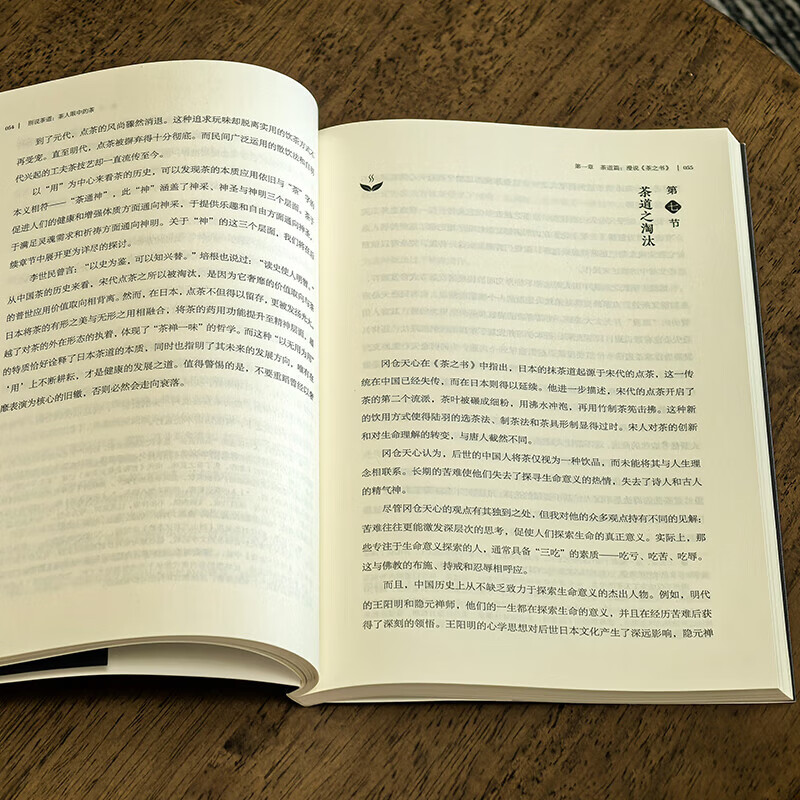 054 | 别说茶道：茶人眼中的茶
到了元代，点茶的风尚骤然消退。这种追求玩味却脱离实用的饮茶方式不
再受宠。直至明代，点茶被摒弃得十分彻底。而民间广泛运用的散饮法和自明
代兴起的工夫茶技艺却一直流传至今。
以“用”为中心来看茶的历史，可以发现茶的本质应用依旧与“茶”字的
本义相符——“茶通神”，此“神”涵盖了神采、神圣与神明三个层面，茶于
促进人们的健康和增强体质方面通向神采，于提供乐趣和自由方面通向神圣，
于满足灵魂需求和祈祷方面通向神明。关于“神”的这三个层面，我们将在后
续章节中展开更为详尽的探讨。
李世民曾言：“以史为鉴，可以知兴替。”培根也说过：“读史使人明智。”
从中国茶的历史来看，宋代点茶之所以被淘汰，是因为它奢靡的价值取向与茶
的普世应用价值取向相背离。然而，在日本，点茶不但得以留存，更被发扬光大。
日本将茶的有形之美与无形之用相融合，将茶的药用功能提升至精神层面，超
越了对茶的外在形态的执着，体现了“茶禅一味”的哲学。而这种“以无用为用”
的特质恰好诠释了日本茶道的本质，同时也指明了其未来的发展方向，唯有在
‘用’上不断耕耘，才是健康的发展之道。值得警惕的是，不要重蹈曾经以奢
靡表演为核心的旧辙，否则必然会走向衰落。
第一章 茶道篇：漫说《茶之书》 | 055
第七节
茶道之淘汰
冈仓天心在《茶之书》中指出，日本的抹茶道起源于宋代的点茶，这一传
统在中国已经失传，而在日本则得以延续。他进一步描述，宋代的点茶开启了
茶的第二个流派，茶叶被碾成细粉，用沸水冲泡，再用竹制茶筅击拂。这种新
的饮用方式使得陆羽的选茶法、制茶法和茶具形制显得过时。宋人对茶的创新
和对生命理解的转变，与唐人截然不同。
冈仓天心认为，后世的中国人将茶仅视为一种饮品，而未能将其与人生理
念相联系。长期的苦难使他们失去了探寻生命意义的热情，失去了诗人和古人
的精气神。
尽管冈仓天心的观点有其独到之处，但我对他的众多观点持有不同的见解；
苦难往往更能激发深层次的思考，促使人们探索生命的真正意义。实际上，那
些专注于生命意义探索的人，通常具备“三吃”的素质——吃亏、吃苦、吃辱。
这与佛教的布施、持戒和忍辱相呼应。
而且，中国历史上从不缺乏致力于探索生命意义的杰出人物。例如，明代
的王阳明和隐元禅师，他们的一生都在探索生命的意义，并且在经历苦难后获
得了深刻的领悟。王阳明的心学思想对后世日本文化产生了深远影响，隐元禅